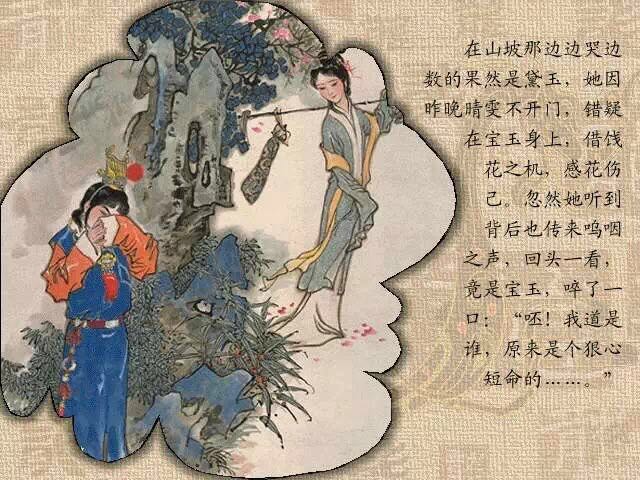 在山坡那边边哭边
数的果然是黛玉，她因
昨晚晴雯不开门，错疑
在宝玉身上，借饯
花之机，感花伤
己。忽然她听到
背后也传来呜咽
之声，回头一看，
竟是宝玉，啐了一
口：“呸！我道是
谁，原来是个狠心
短命的……。”